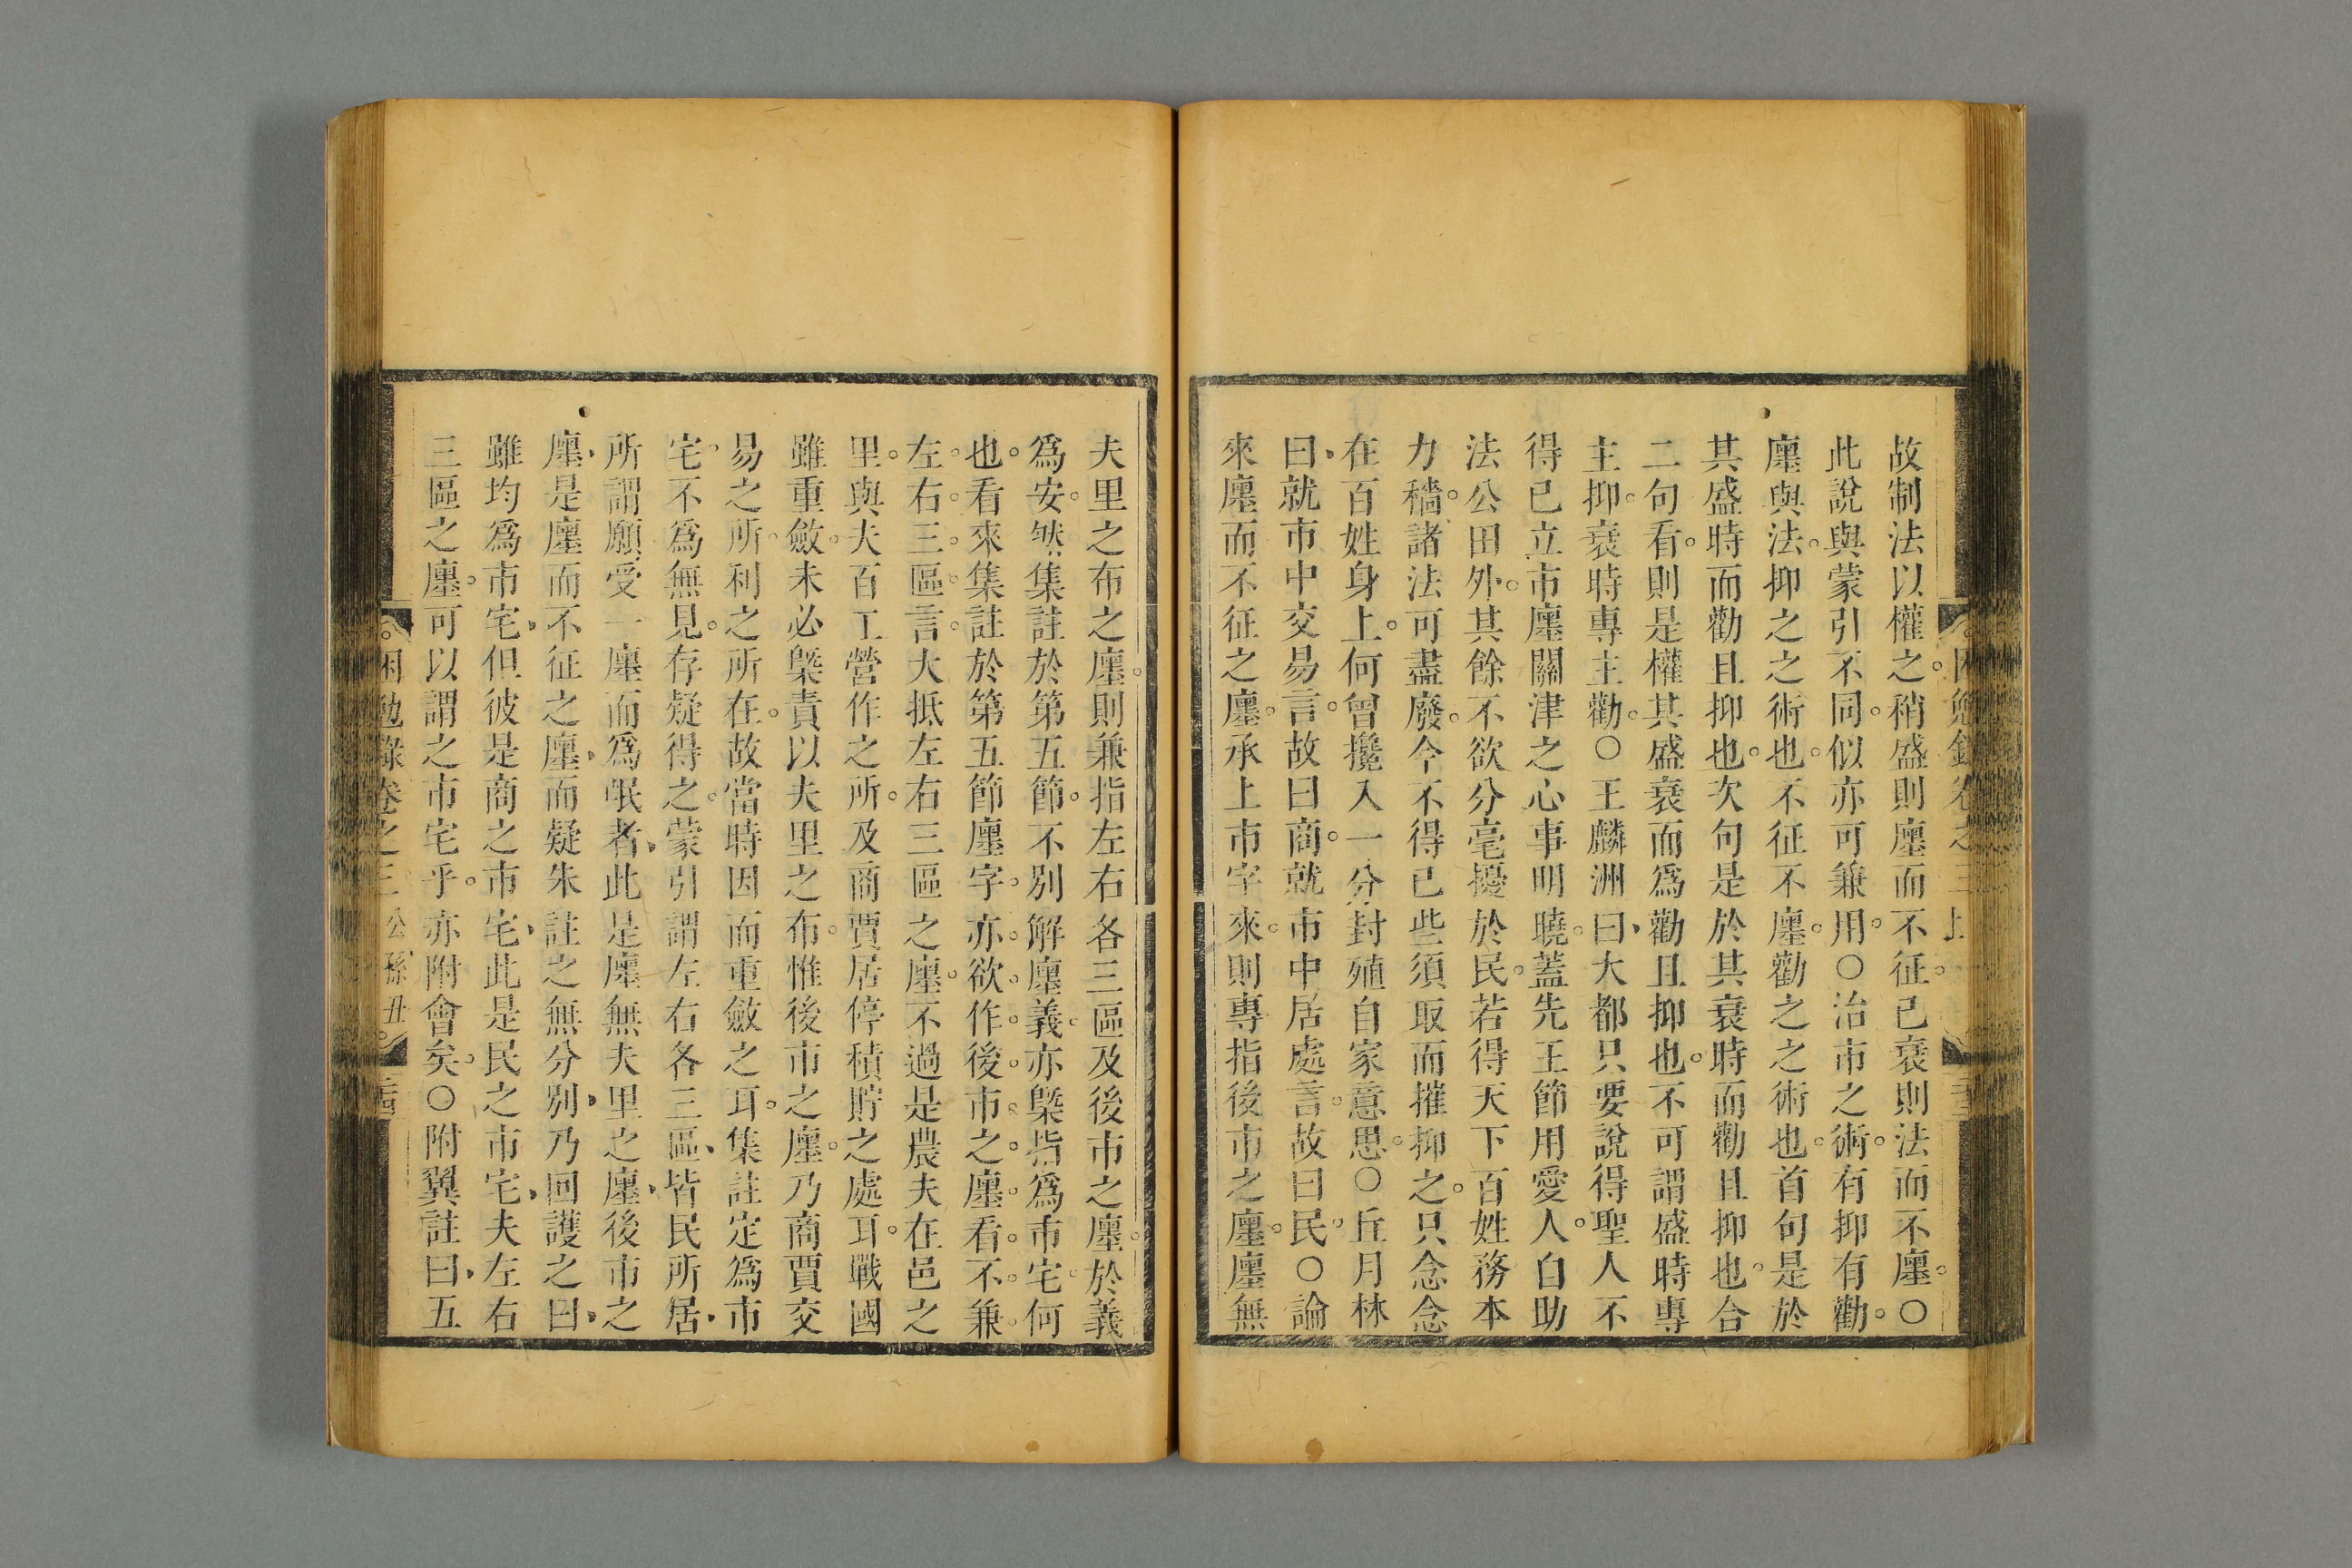 故制法以權之稍盛則廛而不征已衰則法而不廛○
此說與蒙引不同似亦可兼用○治市之術有抑有勸
廛與法抑之之術也不征不廛勸之之術也首句是於
其盛時而勸且抑也次句是於其衰時而勸且抑也合
二句看則是權其盛衰而爲勸且抑也不可謂盛時專
主抑衰時專主勸○王麟洲曰大都只要說得聖人不
得已立市廛關津之心事明曉蓋先王節用愛人自助
法公田外其餘不欲分毫擾於民若得天下百姓務本
力穡諸法可盡廢今不得已些須取而摧抑之只念念
在百姓身上何曾攙入一分封殖自家意思○丘月林
曰就市中交易言故曰商就市中居處言故曰民○論
來廛而不征之廛承上市字來則專指後市之廛廛無
夫里之布之廛則兼指左右各三區及後市之廛於義
爲安然集註於第五節不別解廛義亦槩指爲市宅何
也看來集註於第五節廛字亦欲作後市之廛看不兼
左右三區言大抵左右三區之廛不過是農夫在邑之
里與夫百工營作之所及商賈居停積貯之處耳戰國
雖重斂未必槩責以夫里之布惟後市之廛乃商賈交
易之所利之所在故當時因而重斂之耳集註定爲市
宅不爲無見存疑得之蒙引謂左右各三區皆民所居
所謂願受一廛而爲氓者此是廛無夫里之廛後市之
廛是廛而不征之廛而疑朱註之無分別乃回護之曰
雖均爲市宅但彼是商之市宅此是民之市宅夫左右
三區之廛可以謂之市宅乎亦附會矣○附翼註曰五
困勉錄卷之三 公孫丑